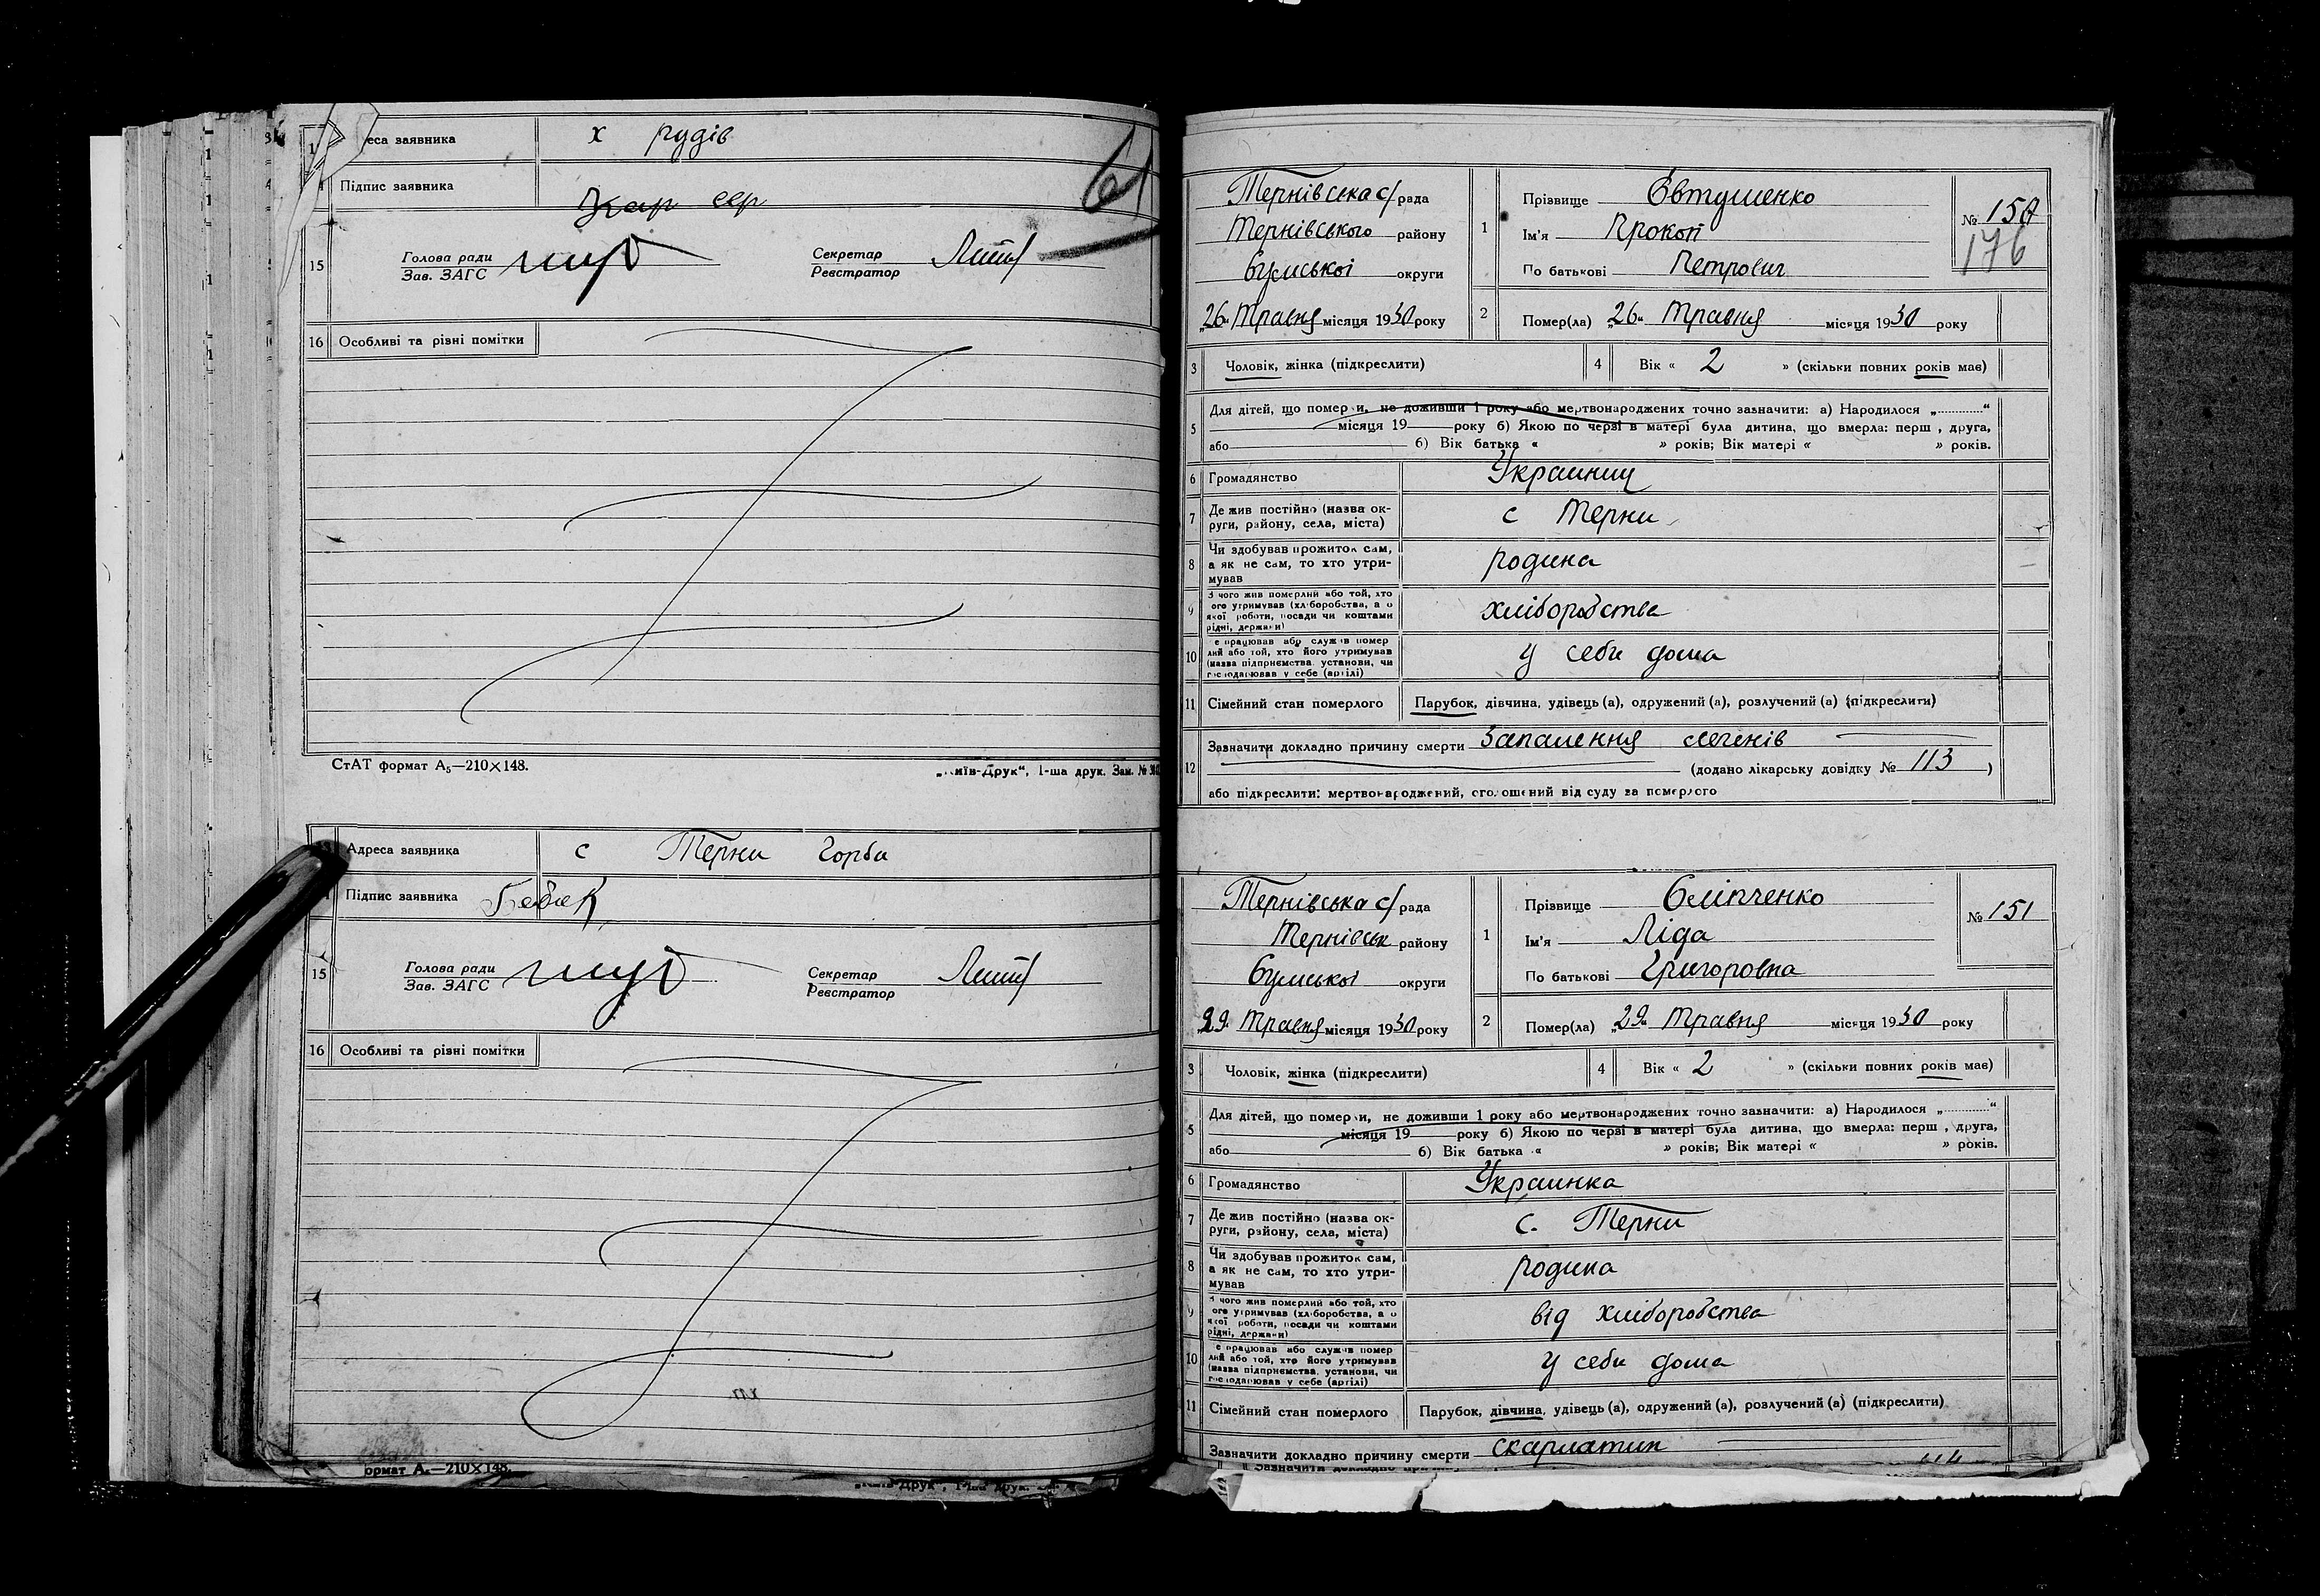 еса заявника х рудів
Підпис заявника
61
15 Голова ради
Зав. ЗАГС
Секретар
Реєстратор
16 Особливі та різні помітки
СтАТ формат А₅—210×148. „Київ-Друк“, 1-ша друк. Зам. №
Адреса заявника с Терни Горби
Підпис заявника
15 Голова ради
Зав. ЗАГС
Секретар
Реєстратор
16 Особливі та різні помітки
ормат А₅—210×148.
Друк“, 1-ша друк.
Тернівська с/рада
Тернівського району
Сумської округи
„26“ Травня місяця 1930 року
1 Прізвище Євтушенко
Ім'я Прокоп
По батькові Петрович
№ 150
176
2 Помер(ла) „26“ Травня місяця 1930 року
3 Чоловік, жінка (підкреслити)
4 Вік « 2 » (скільки повних років має)
5 Для дітей, що померли, не доживши 1 року або мертвонароджених точно зазначити: а) Народилося „............“
місяця 19 року б) Якою по черзі в матері була дитина, що вмерла: перш , друга,
або б) Вік батька « » років; Вік матері « » років.
6 Громадянство Украинец
7 Де жив постійно (назва ок-
руги, району, села, міста) с Терни
8 Чи здобував прожиток сам,
а як не сам, то хто утри-
мував родина
9 З чого жив померлий або той, хто
ого утримував (хліборобства, а о
якої роботи, посади чи коштами
рідні, держави) хліборобства
10 е працював або служив помер
лий або той, хто його утримував
(назва підприємства, установи, чи
господарював у себе (артілі) у себи дома
11 Сімейний стан померлого Парубок, дівчина, удівець (а), одружений (а), розлучений (а) (підкреслити)
12 Зазначити докладно причину смерти Запалення легенів
(додано лікарську довідку № 113 )
або підкреслити: мертвонароджений, оголошений від суду за померлого
Тернівська с/рада
Тернівськ району
Сумської округи
„29“ Травня місяця 1930 року
1 Прізвище Сліпченко
Ім'я Ліда
По батькові Григоровна
№ 151
2 Помер(ла) „29“ Травня місяця 1930 року
3 Чоловік, жінка (підкреслити)
4 Вік « 2 » (скільки повних років має)
5 Для дітей, що померли, не доживши 1 року або мертвонароджених точно зазначити: а) Народилося „............“
місяця 19 року б) Якою по черзі в матері була дитина, що вмерла: перш , друга,
або б) Вік батька « » років; Вік матері « » років.
6 Громадянство Украинка
7 Де жив постійно (назва ок-
руги, району, села, міста) с. Терни
8 Чи здобував прожиток сам,
а як не сам, то хто утри-
мував родина
9 З чого жив померлий або той, хто
ого утримував (хліборобства, а о
якої роботи, посади чи коштами
рідні, держави) від хліборобства
10 е працював або служив помер
лий або той, хто його утримував
(назва підприємства, установи, чи
господарював у себе (артілі) у себи дома
11 Сімейний стан померлого Парубок, дівчина, удівець (а), одружений (а), розлучений (а) (підкреслити)
Зазначити докладно причину смерти скарлатин